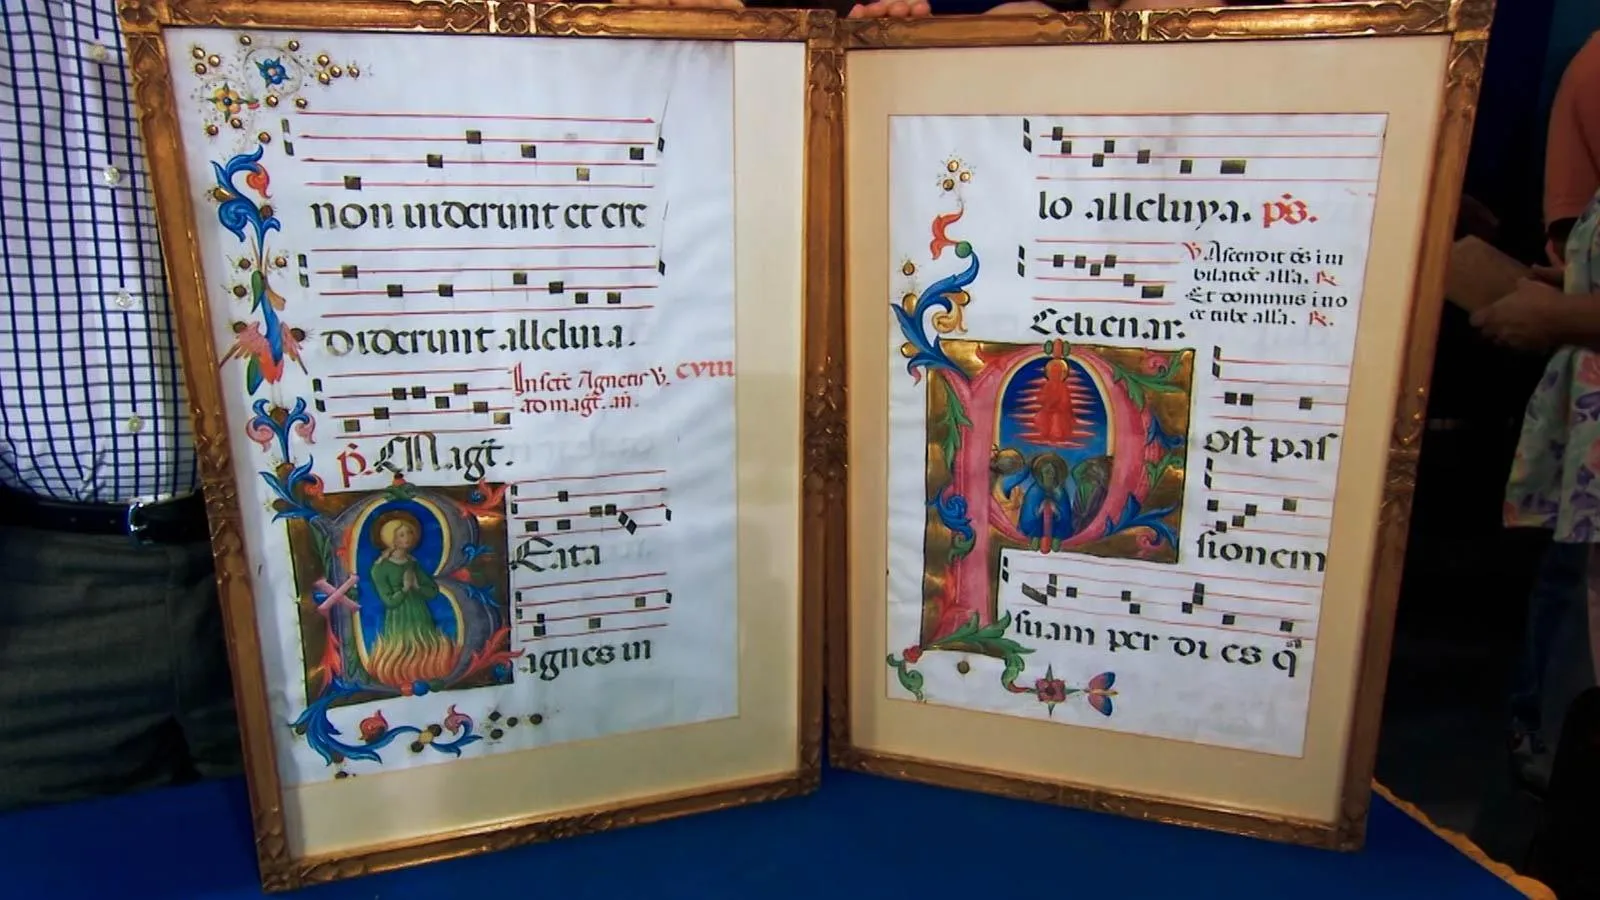 non uiderunt et cre
diderunt alleluia.
In scē Agnetis V. CVIII
ad magt. an.
p. Magt.
Beata
agnes in
lo alleluya. ps.
V. Ascendit ds i iu
bilatioe alla. R.
Et dominus i uo
ce tube alla. R.
Celi enar.
Post pas
sionem
suam per di es q